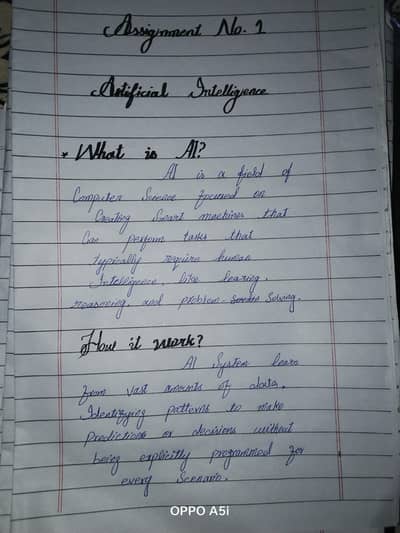 Assignment No. 1
Artificial Intelligence
* What is AI?
AI is a field of
Computer Science focused on
Creating Smart machines that
Can perform tasks that
typically require human
Intelligence, like learing,
reasoning, and problem- Solving.
How it work?
AI System learn
from vast amounts of data,
Identifying patterns to make
Predictions or decisions without
being explicitly programmed for
every Scenario.
OPPO A5i